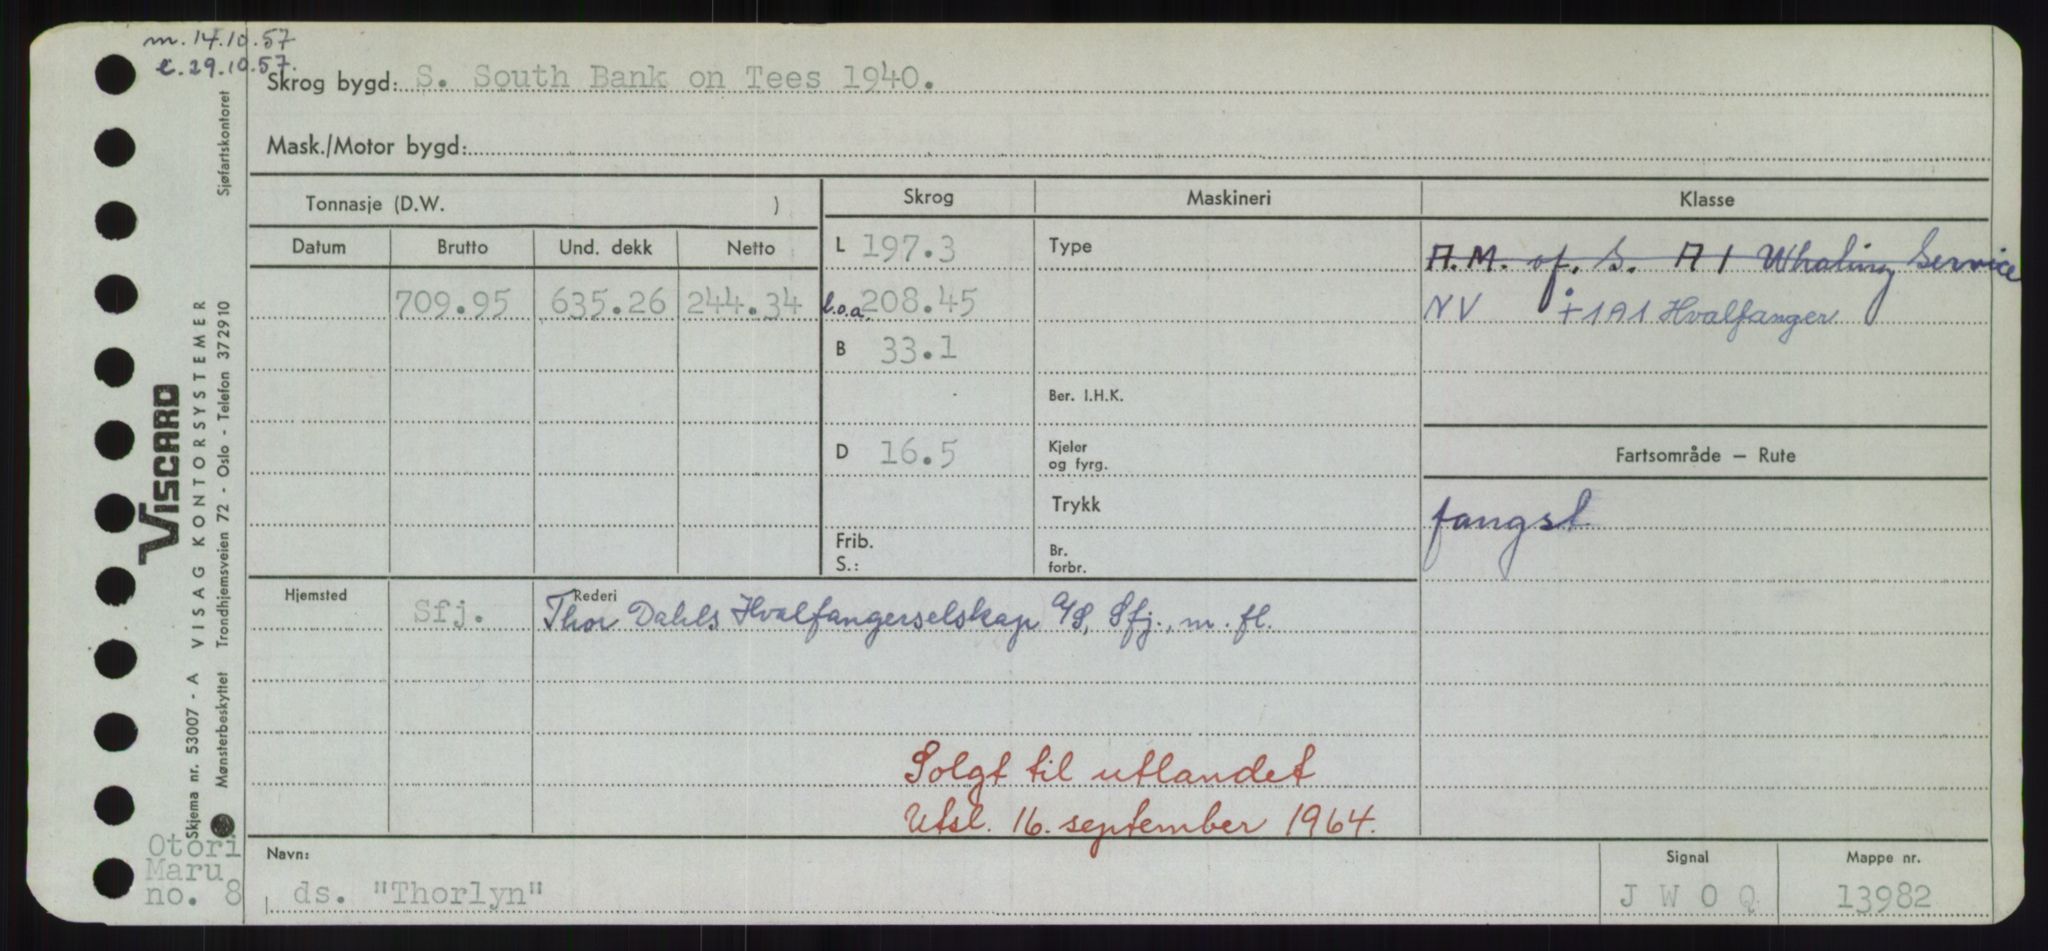 m. 14.10.57
e. 29.10.57.
Skrog bygd: S. South Bank on Tees 1940.
Mask./Motor bygd:
Tonnasje (D.W. )
Skrog
Maskineri
Klasse
Datum
Brutto
Und. dekk
Netto
709.95
635.26
244.34
L 197.3
l.o.a. 208.45
B 33.1
D 16.5
Frib.
S.:
Type
Ber. I.H.K.
Kjeler
og fyrg.
Trykk
Br.
forbr.
A.M. of. S. A1 Whaling Service
NV +1A1 Hvalfanger
Fartsområde — Rute
fangst
Hjemsted
Sfj.
Rederi
Thor Dahls Hvalfangerselskap A/S, Sfj., m. fl.
Solgt til utlandet
Utsl. 16. september 1964.
Navn:
ds. "Thorlyn"
Signal
J W O Q
Mappe nr.
13982
Otori
Maru
no. 8
VISCARD
Skjema nr. 53007 - A VISAG KONTORSYSTEMER
Mønsterbeskyttet Trondhjemsveien 72 - Oslo - Telefon 372910
Sjøfartskontoret